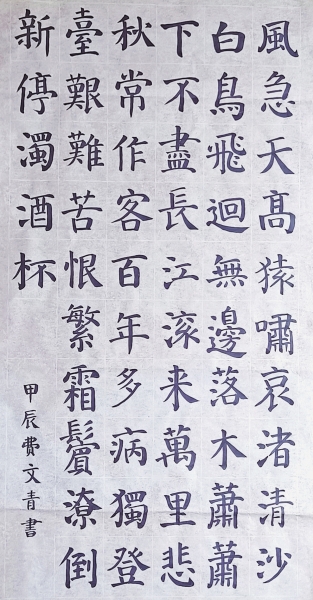 風急天髙猿嘯哀渚清沙
白鳥飛迴無邊落木蕭蕭
下不盡長江滚来萬里悲
秋常作客百年多病獨登
臺艱難苦恨繁霜鬢潦倒
新停濁酒杯
甲辰費文青書